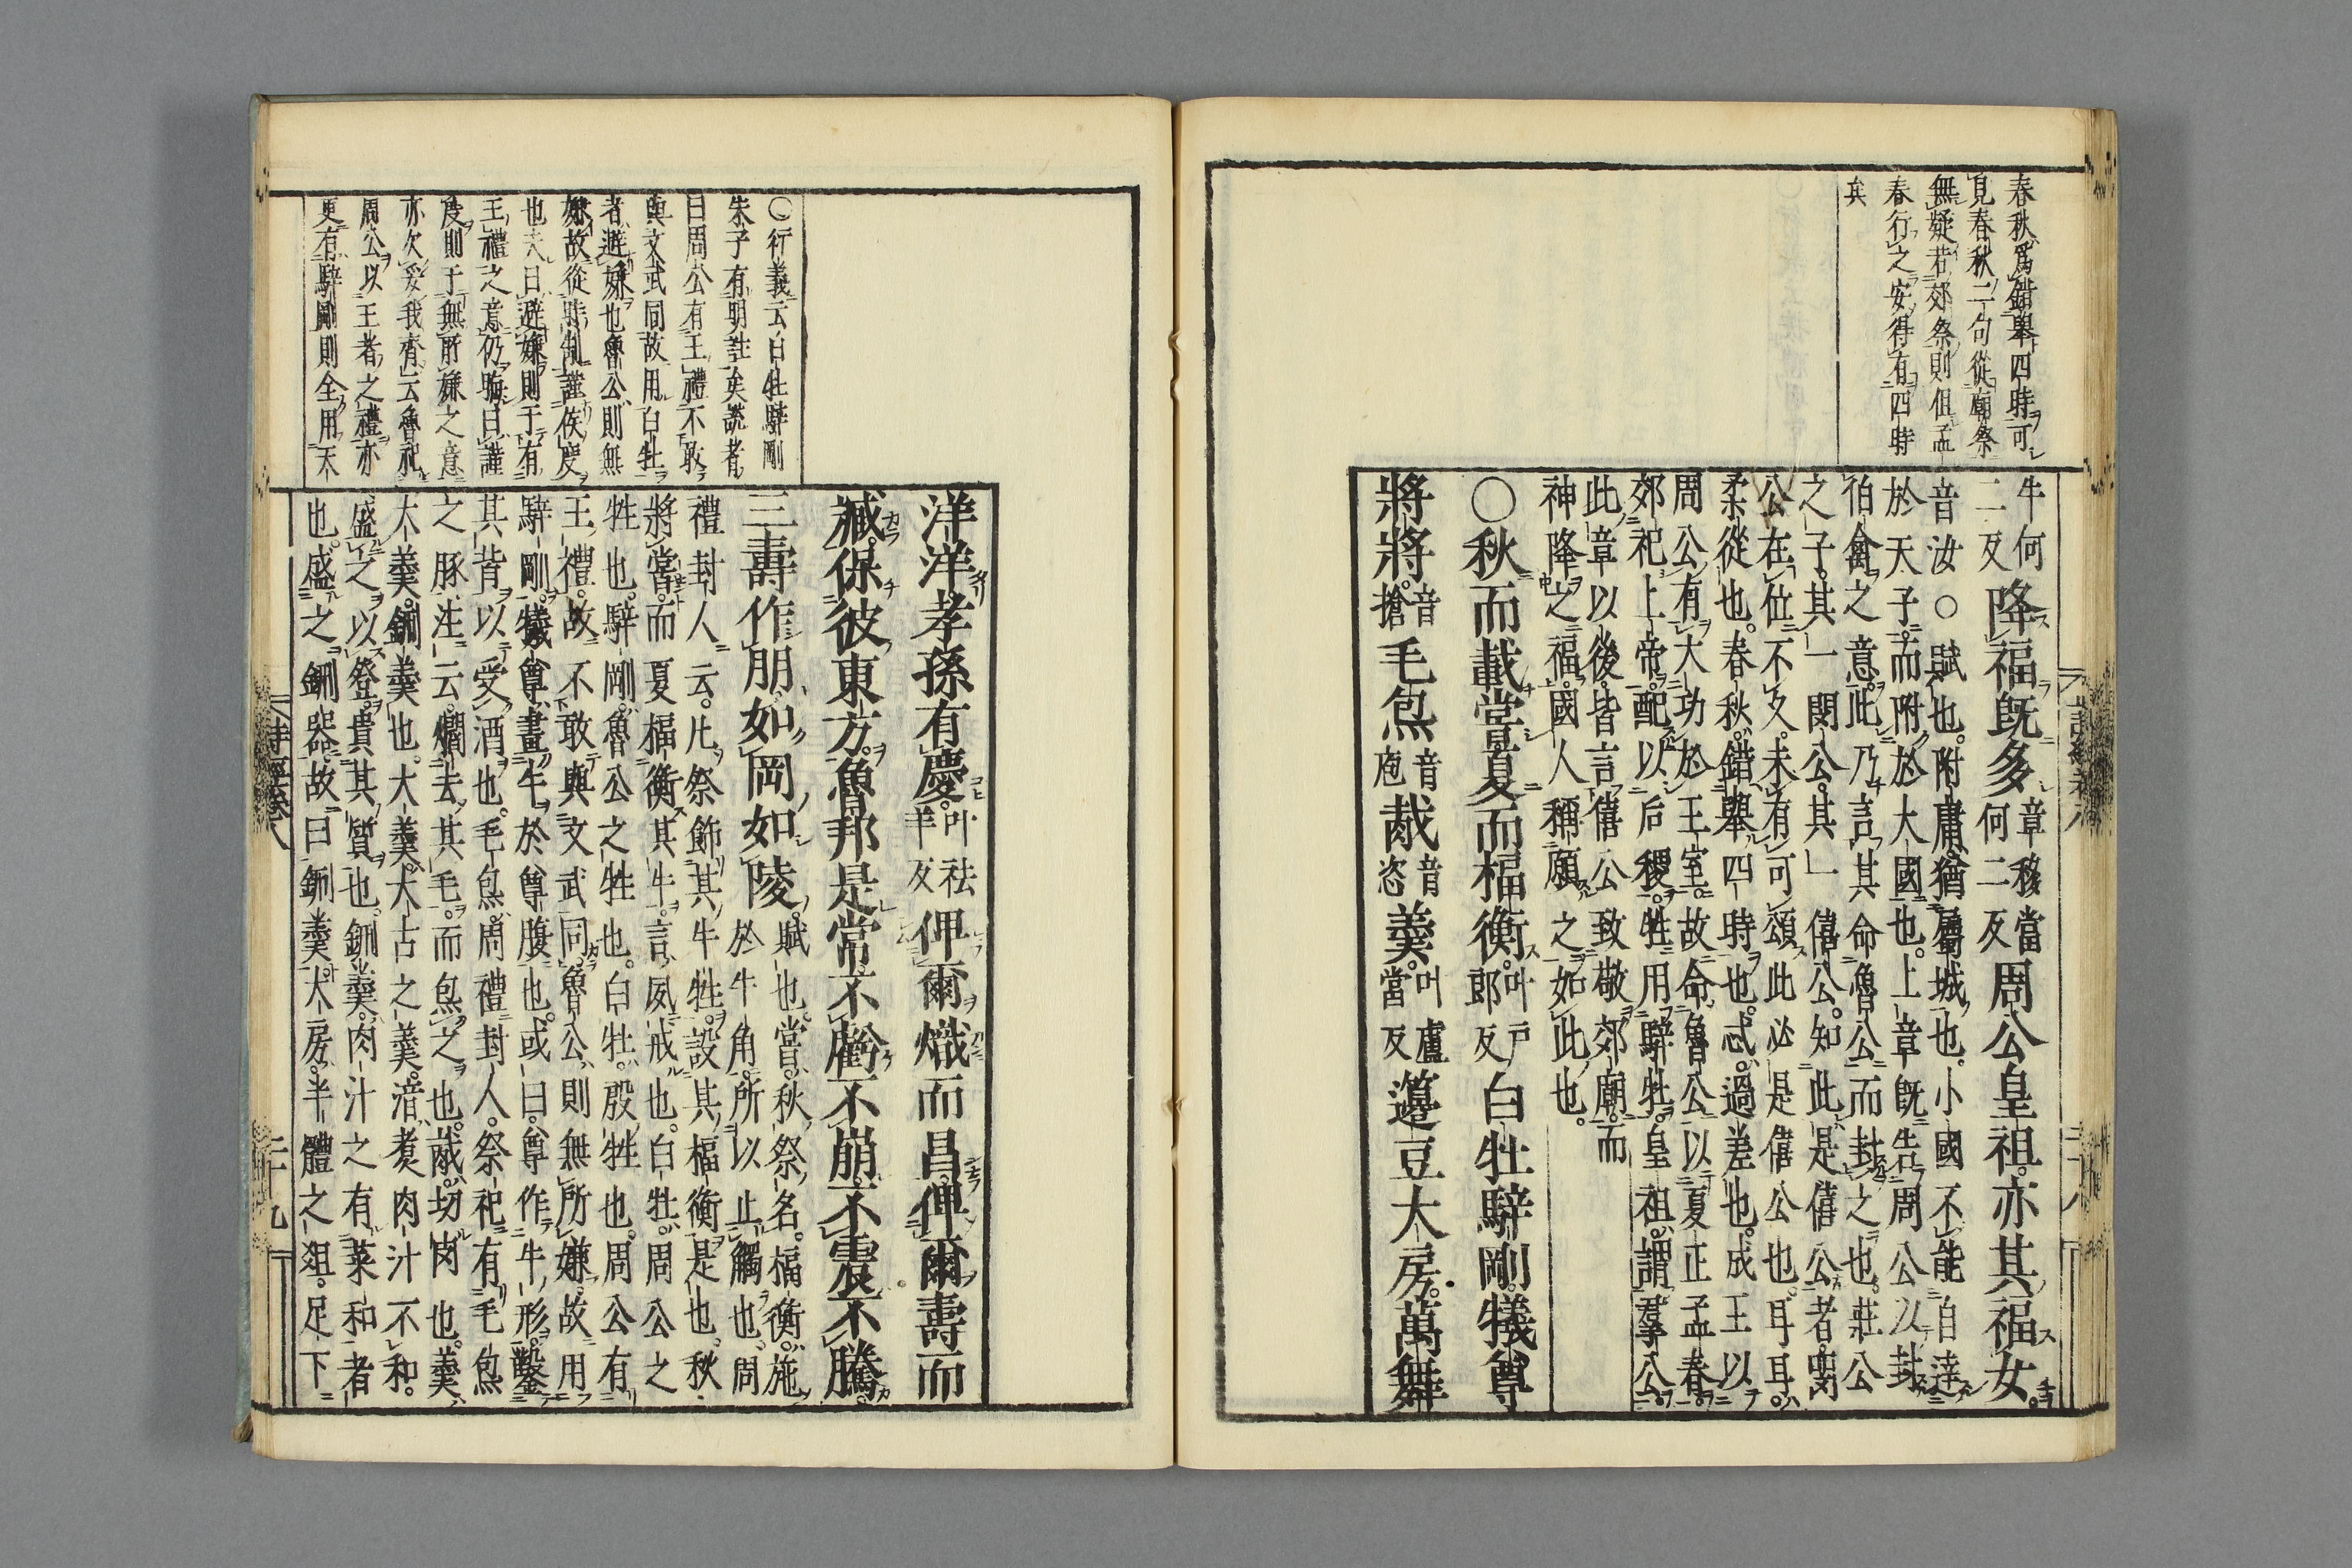 春秋爲錯舉四時可
見春秋二句從廟祭
無疑若郊祭則但孟
春行之安得有四時
矣
牛何二反降福既多章移當何二反周公皇祖亦其福女
音汝○賦也附庸猶屬城也小國不能自達
於天子而附於大國也上章既告周公以封
伯禽之意此乃言其命魯公而封之也莊公
之子其一閔公其一僖公知此是僖公者閔
公在位不久未有可頌此必是僖公也耳耳
柔從也春秋錯舉四時也忒過差也成王以
周公有大功於王室故命魯公以夏正孟春
郊祀上帝配以后稷牲用騂牡皇祖謂羣公
此章以後皆言僖公致敬郊廟而
神降之福國人稱願之如此也
○秋而載嘗夏而楅衡叶戸郎反白牡騂剛犧尊
將將音搶毛炰音庖胾音恣羹叶盧當反籩豆大房萬舞
詩經卷八
二十八
○衍義云白牡騂剛
朱子有明註矣說者
曰周公有王禮不敢
與文武同故用白牡
者避嫌也魯公則無
嫌故從時制謹侯度
也夫曰避嫌則于有
王禮之意仍晦曰謹
度則于無所嫌之意
亦欠妥我齊云魯祀
周公以王者之禮亦
更有騂剛則全用天
洋洋孝孫有慶叶袪羊反俾爾熾而昌俾爾壽而
臧保彼東方魯邦是常不虧不崩不震不騰
三壽作朋如岡如陵賦也嘗秋祭名楅衡施於牛角所以止觸也周
禮封人云凡祭飾其牛牲設其楅衡是也秋
將嘗而夏楅衡其牛言夙戒也白牡周公之
牲也騂剛魯公之牲也白牡殷牲也周公有
王禮故不敢與文武同魯公則無所嫌故用
騂剛犧尊畫牛於尊腹也或曰尊作牛形鑿
其背以受酒也毛炰周禮封人祭祀有毛炰
之豚注云爓去其毛而炰之也胾切肉也羹
大羹鉶羹也大羹大古之羹湆煑肉汁不和
盛之以登貴其質也鉶羹肉汁之有菜和者
也盛之鉶器故曰鉶羹大房半體之俎足下
詩經卷八
二十九